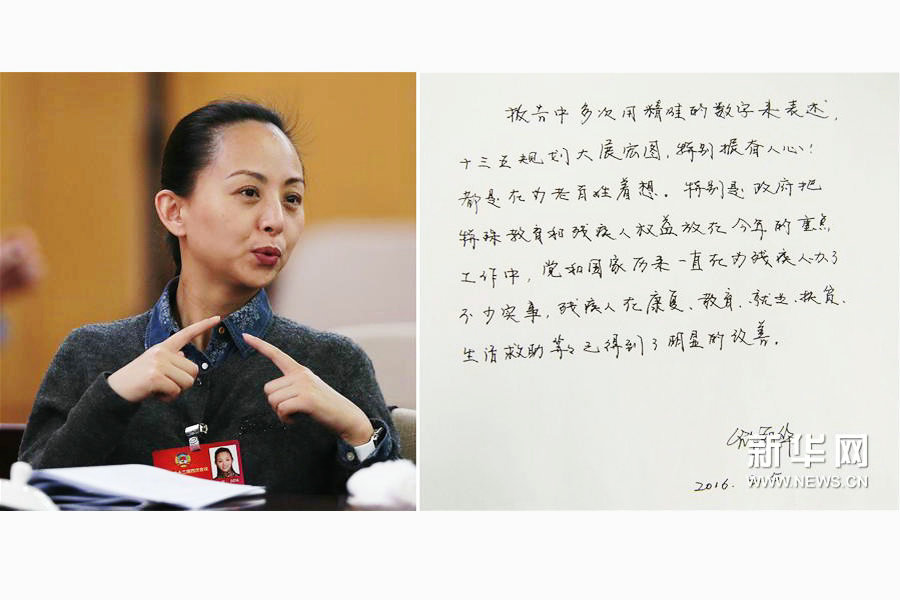 报告中多次用精准的数字来表述，
十三五规划大展宏图，特别振奋人心！
都是在为老百姓着想。特别是政府把
特殊教育和残疾人权益放在今年的重点
工作中，党和国家历来一直在为残疾人办了
不少实事，残疾人在康复、教育、就业、扶贫、
生活救助等已得到了明显的改善。
新华网
WWW.NEWS.CN
2016.